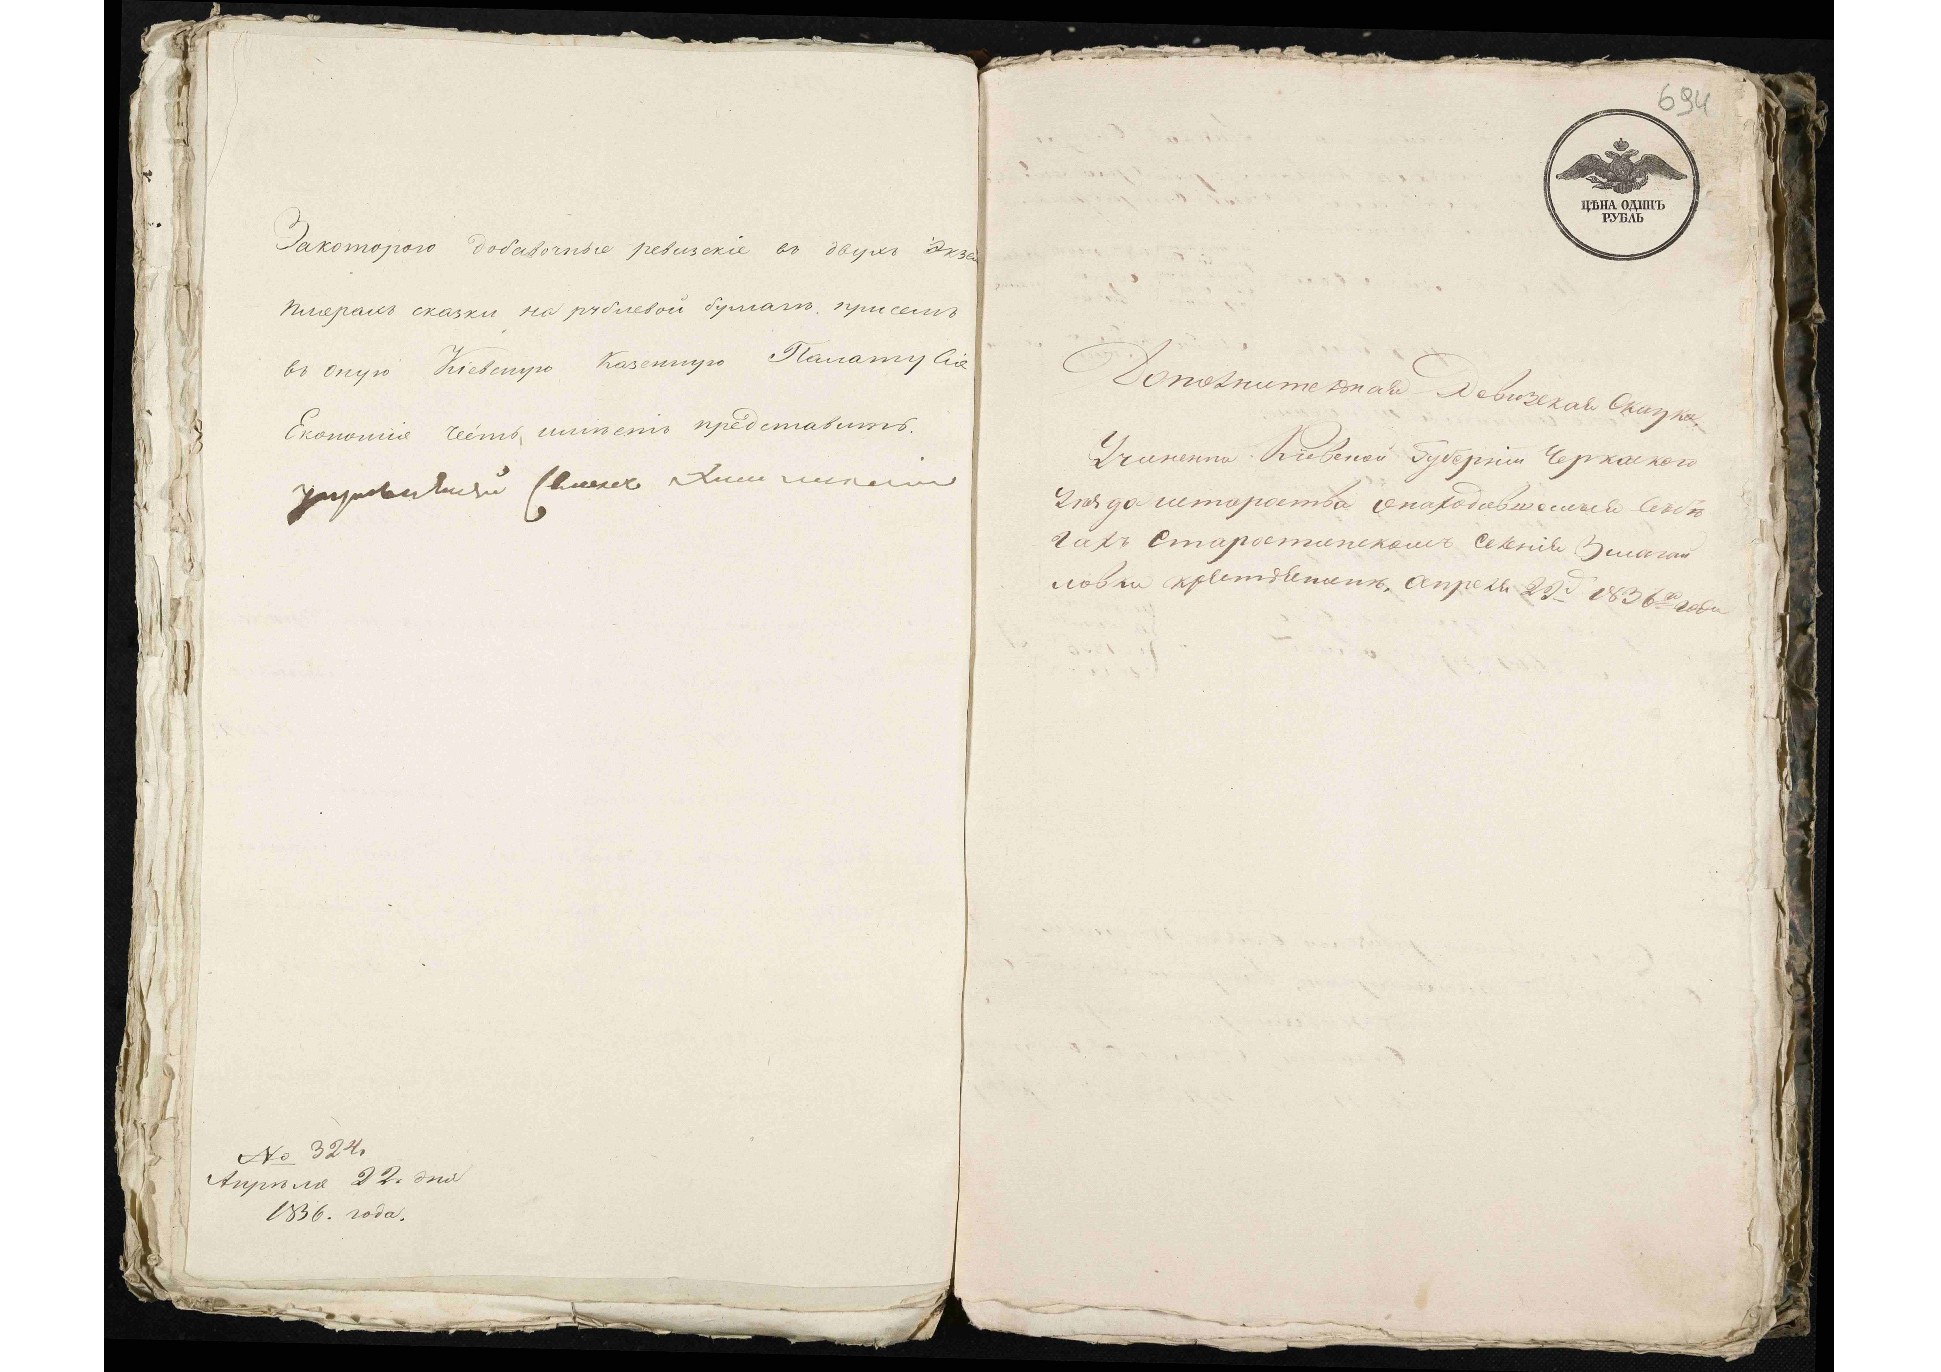 Закоторого добавочные ревизскіе въ двухъ Экзем
плярахъ сказки на рублевой бумагѣ, присемъ
въ оную Кіевскую Казенную Палату Сія
Економія честь имѣетъ представить.
управляющій
№ 324.
Апрѣля 22. дня
1836. года.
694
ЦѢНА ОДИНЪ
РУБЛЬ
Дополнительная Ревизская Сказка.
Учиненна Кіевской Губерніи Черкаского
Уѣзда староства онаходившемся въ бѣ
гахъ Старостинскомъ Селенія
ловки крестьянинѣ, Апреля 22д 1836го года